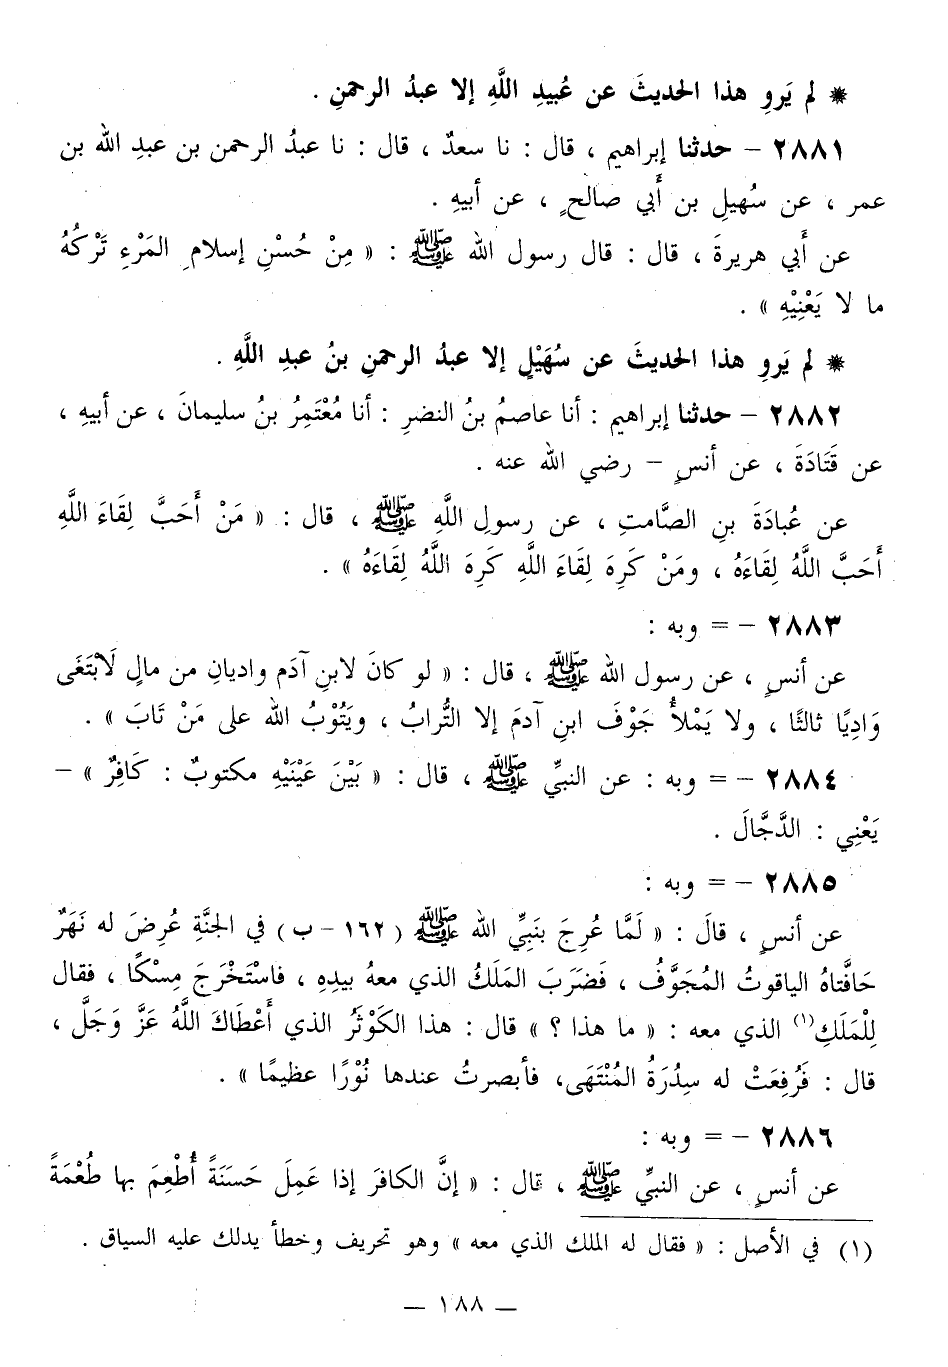 * لم يَروِ هذا الحديثَ عن عُبيدِ اللَّهِ إلا عبدُ الرحمنِ .
٢٨٨١ – حدثنا إبراهيم ، قال : نا سعدٌ ، قال : نا عبدُ الرحمن بن عبدِ الله بن
عمر ، عن سُهيلِ بن أَبي صالحٍ ، عن أبيهِ .
عن أَبي هريرةَ ، قال : قال رسول الله ﷺ : « مِنْ حُسْنِ إسلامِ المَرْءِ تَرْكُهُ
ما لا يَعْنِيْهِ » .
* لم يَروِ هذا الحديثَ عن سُهَيْلٍ إلا عبدُ الرحمنِ بنُ عبدِ اللَّهِ .
٢٨٨٢ – حدثنا إبراهيم : أنا عاصمُ بنُ النضرِ : أنا مُعْتَمِرُ بنُ سليمانَ ، عن أبيهِ ،
عن قَتَادَةَ ، عن أنسٍ – رضي الله عنه .
عن عُبادَةَ بنِ الصَّامتِ ، عن رسولِ اللَّهِ ﷺ ، قال : « مَنْ أَحَبَّ لِقَاءَ اللَّهِ
أَحَبَّ اللَّهُ لِقَاءَهُ ، ومَنْ كَرِهَ لِقَاءَ اللَّهِ كَرِهَ اللَّهُ لِقَاءَهُ » .
٢٨٨٣ – = وبه :
عن أنسٍ ، عن رسول الله ﷺ ، قال : « لو كانَ لابنِ آدَم واديانِ من مالٍ لَابْتَغَى
وَادِيًا ثالثًا ، ولا يَمْلأُ جَوْفَ ابنِ آدمَ إلا التُّرابُ ، ويَتُوْبُ الله على مَنْ تَابَ » .
٢٨٨٤ – = وبه : عن النبيِّ ﷺ ، قال : « بَيْنَ عَيْنَيْهِ مكتوبٌ : كَافِرٌ » –
يَعْنِي : الدَّجَّالَ .
٢٨٨٥ – = وبه :
عن أنسٍ ، قالَ : « لَمَّا عُرِجَ بنَبيِّ الله ﷺ ( ١٦٢ – ب ) في الجنَّةِ عُرِضَ له نَهَرٌ
حَافَّتاهُ الياقوتُ المُجَوَّفُ ، فَضَرَبَ المَلَكُ الذي معهُ بيدِهِ ، فاسْتَخْرَجَ مِسْكًا ، فقال
لِلْمَلَكِ(١) الذي معه : « ما هذا ؟ » قال : هذا الكَوْثَرُ الذي أَعْطَاكَ اللَّهُ عَزَّ وَجَلَّ ،
قال : فَرُفِعَتْ له سِدْرَةُ المُنْتَهَى، فأبصرتُ عندها نُوْرًا عظيمًا » .
٢٨٨٦ – = وبه :
عن أنسٍ ، عن النبيِّ ﷺ ، قال : « إنَّ الكافرَ إذا عَمِلَ حَسَنَةً أُطْعِمَ بها طُعْمَةً
(١) في الأصل : « فقال له الملك الذي معه » وهو تحريف وخطأ يدلك عليه السياق .
– ١٨٨ –